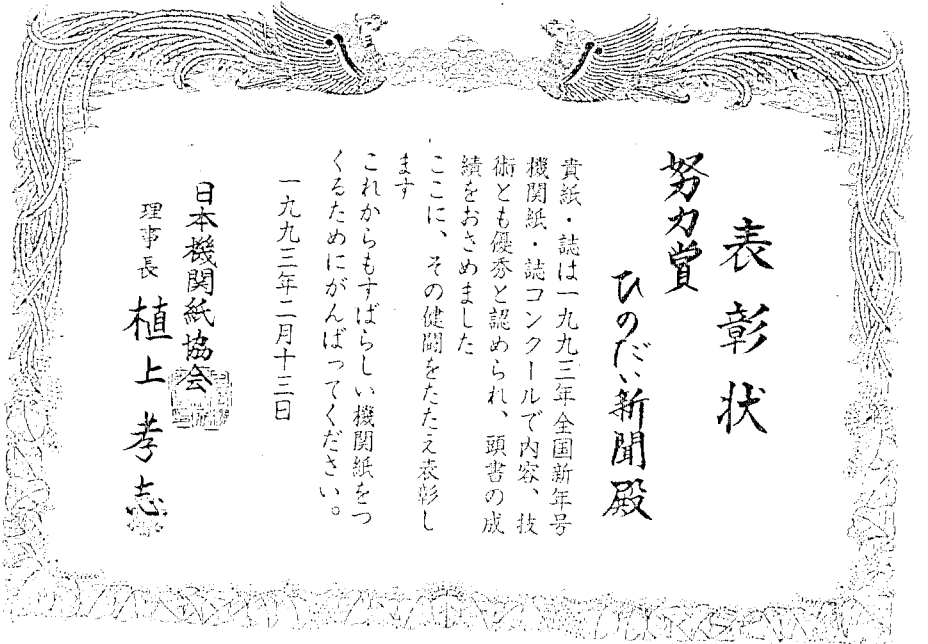 表彰状
努力賞
ひのだい新聞殿
貴紙・誌は一九九三年全国新年号
機関紙・誌コンクールで内容、技
術とも優秀と認められ、頭書の成
績をおさめました
ここに、その健闘をたたえ表彰し
ます
これからもすばらしい機関紙をつ
くるためにがんばってください。
一九九三年二月十三日
日本機関紙協会
理事長 植上孝志